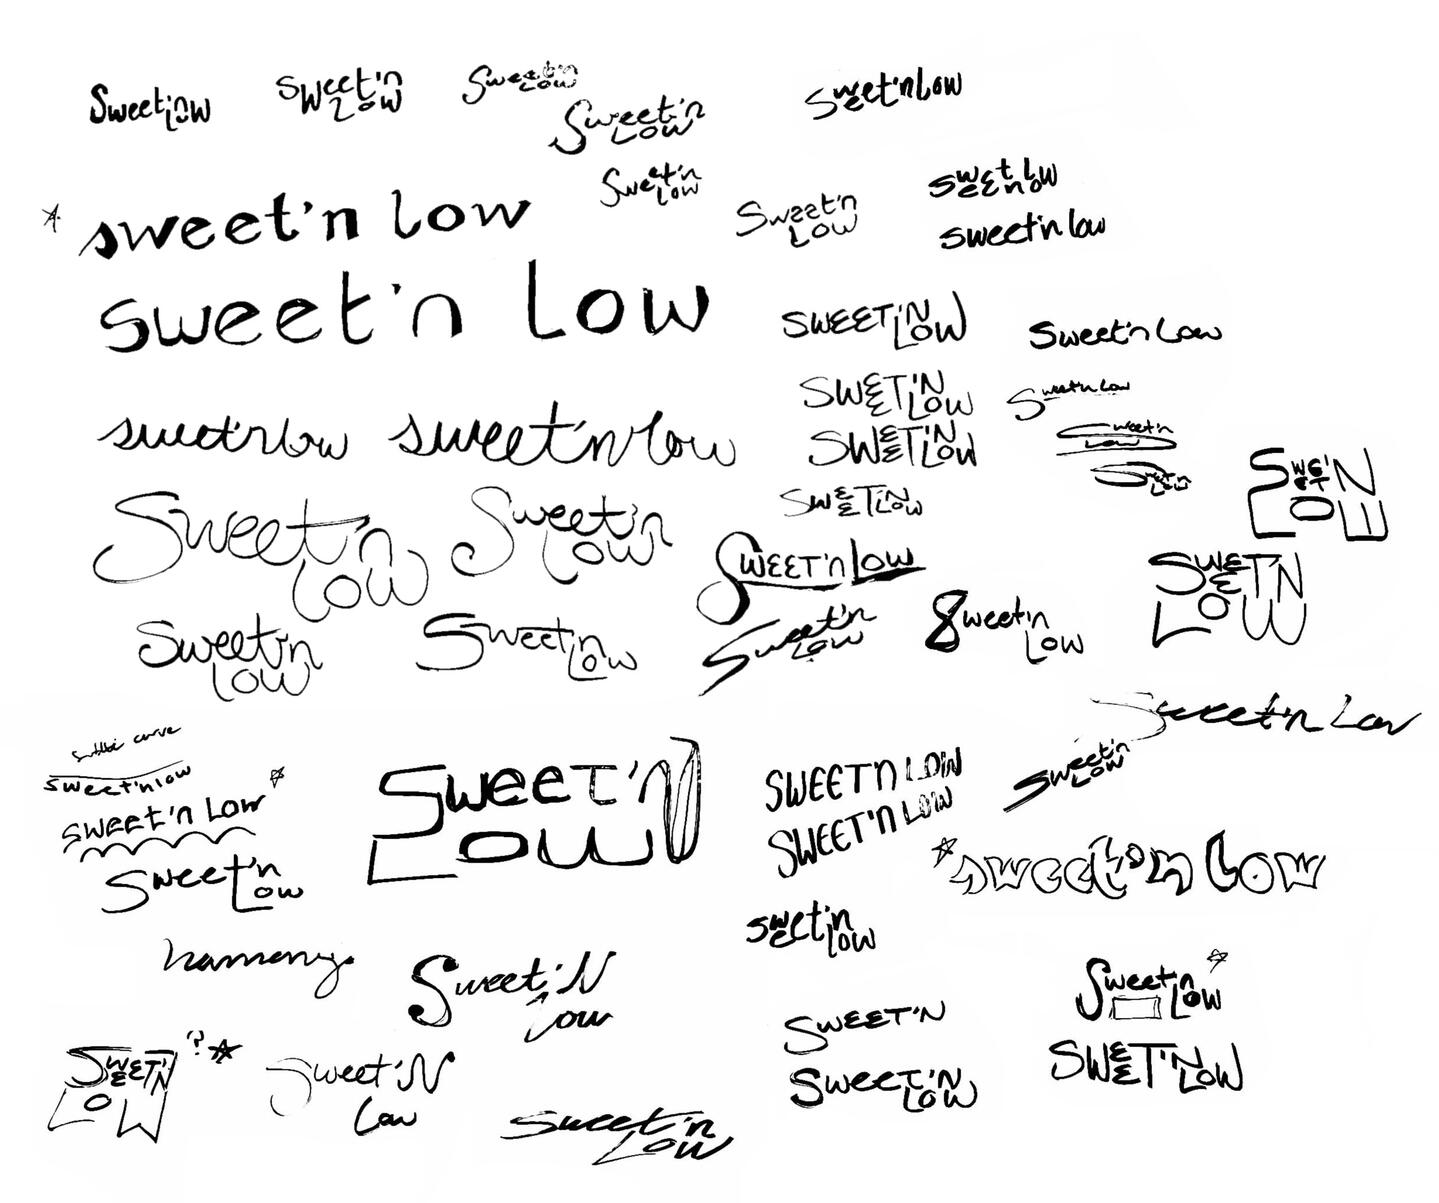 Sweet'n
Low
Sweet'n
Low
Sweet'n
Low
Sweet'n
Low
Sweet'n Low
Sweet'n
Low
sweet'n low
Sweet'n
Low
Sweet'n Low
sweet'n low
sweet'n Low
SWEET'N
LOW
Sweet'n Low
SWEET'N
LOW
Sweet'n Low
SWEET'N
LOW
Sweet'n
Low
sweet'n low
sweet'n low
Sweet'n
Low
SWEET'N
LOW
SWE'N
ET
LOW
Sweet'n
Low
Sweet'n
Low
SWEET'n Low
SWEET'N
LOW
Sweet'n
Low
Sweet'n
Low
Sweet'n
Low
Sweet'n
Low
Sweet'n Low
curve
sweet'n low
sweet'n Low
Sweet'n
Low
SWEET'N
LOW
SWEET'N LOW
SWEET'N LOW
Sweet'n
Low
sweet'n Low
sweet'n
low
harmony
Sweet'N
Low
Sweet'n
Low
SWEET'N
SWEET'N
LOW
SWEET'N
LOW
?
SWEET'N
LOW
Sweet'N
Low
Sweet'n
Low